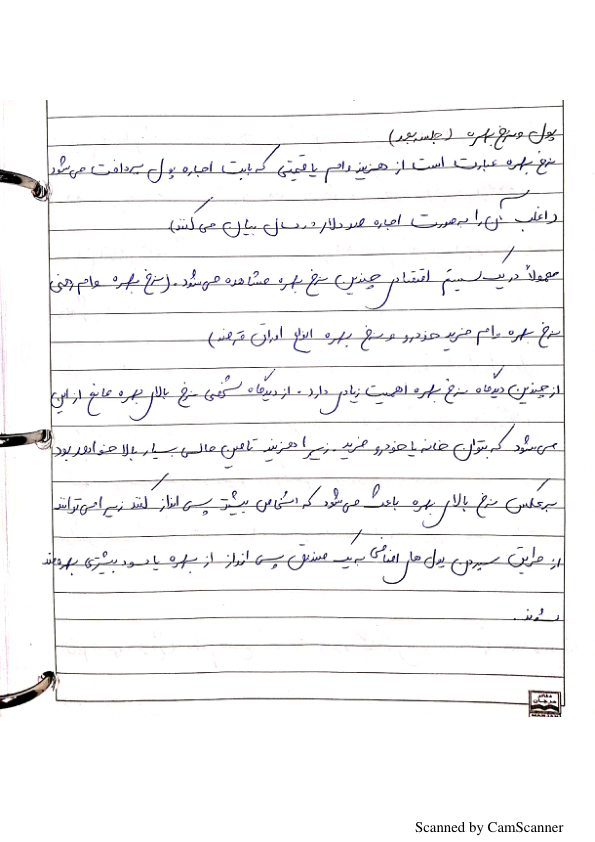 پول و نرخ بهره (جلسه بعد)
نرخ بهره عبارت است از هزینه وام یا قیمتی که بابت اجاره پول پرداخت می‌شود
(اغلب آن را به صورت اجاره صد دلار در سال بیان می‌کنند)
معمولاً در یک سیستم اقتصادی چندین نرخ بهره مشاهده می‌شود. (نرخ بهره وام رهنی
نرخ بهره وام خرید خودرو و نرخ بهره انواع اوراق قرضه)
از چندین دیدگاه نرخ بهره اهمیت زیادی دارد. از دیدگاه شخصی نرخ بالای بهره مانع از این
می‌شود که بتوان خانه یا خودرو خرید. زیرا هزینه تامین مالی بسیار بالا خواهد بود
برعکس نرخ بالای بهره باعث می‌شود که اشخاص بیشتر پس انداز کنند زیرا می‌توانند
از طریق سپردن پول های اضافی به یک صندوق پس انداز از بهره یا سود بیشتری بهره‌مند
شوند.
دفاتر
مرجان
MARJAN
Scanned by CamScanner